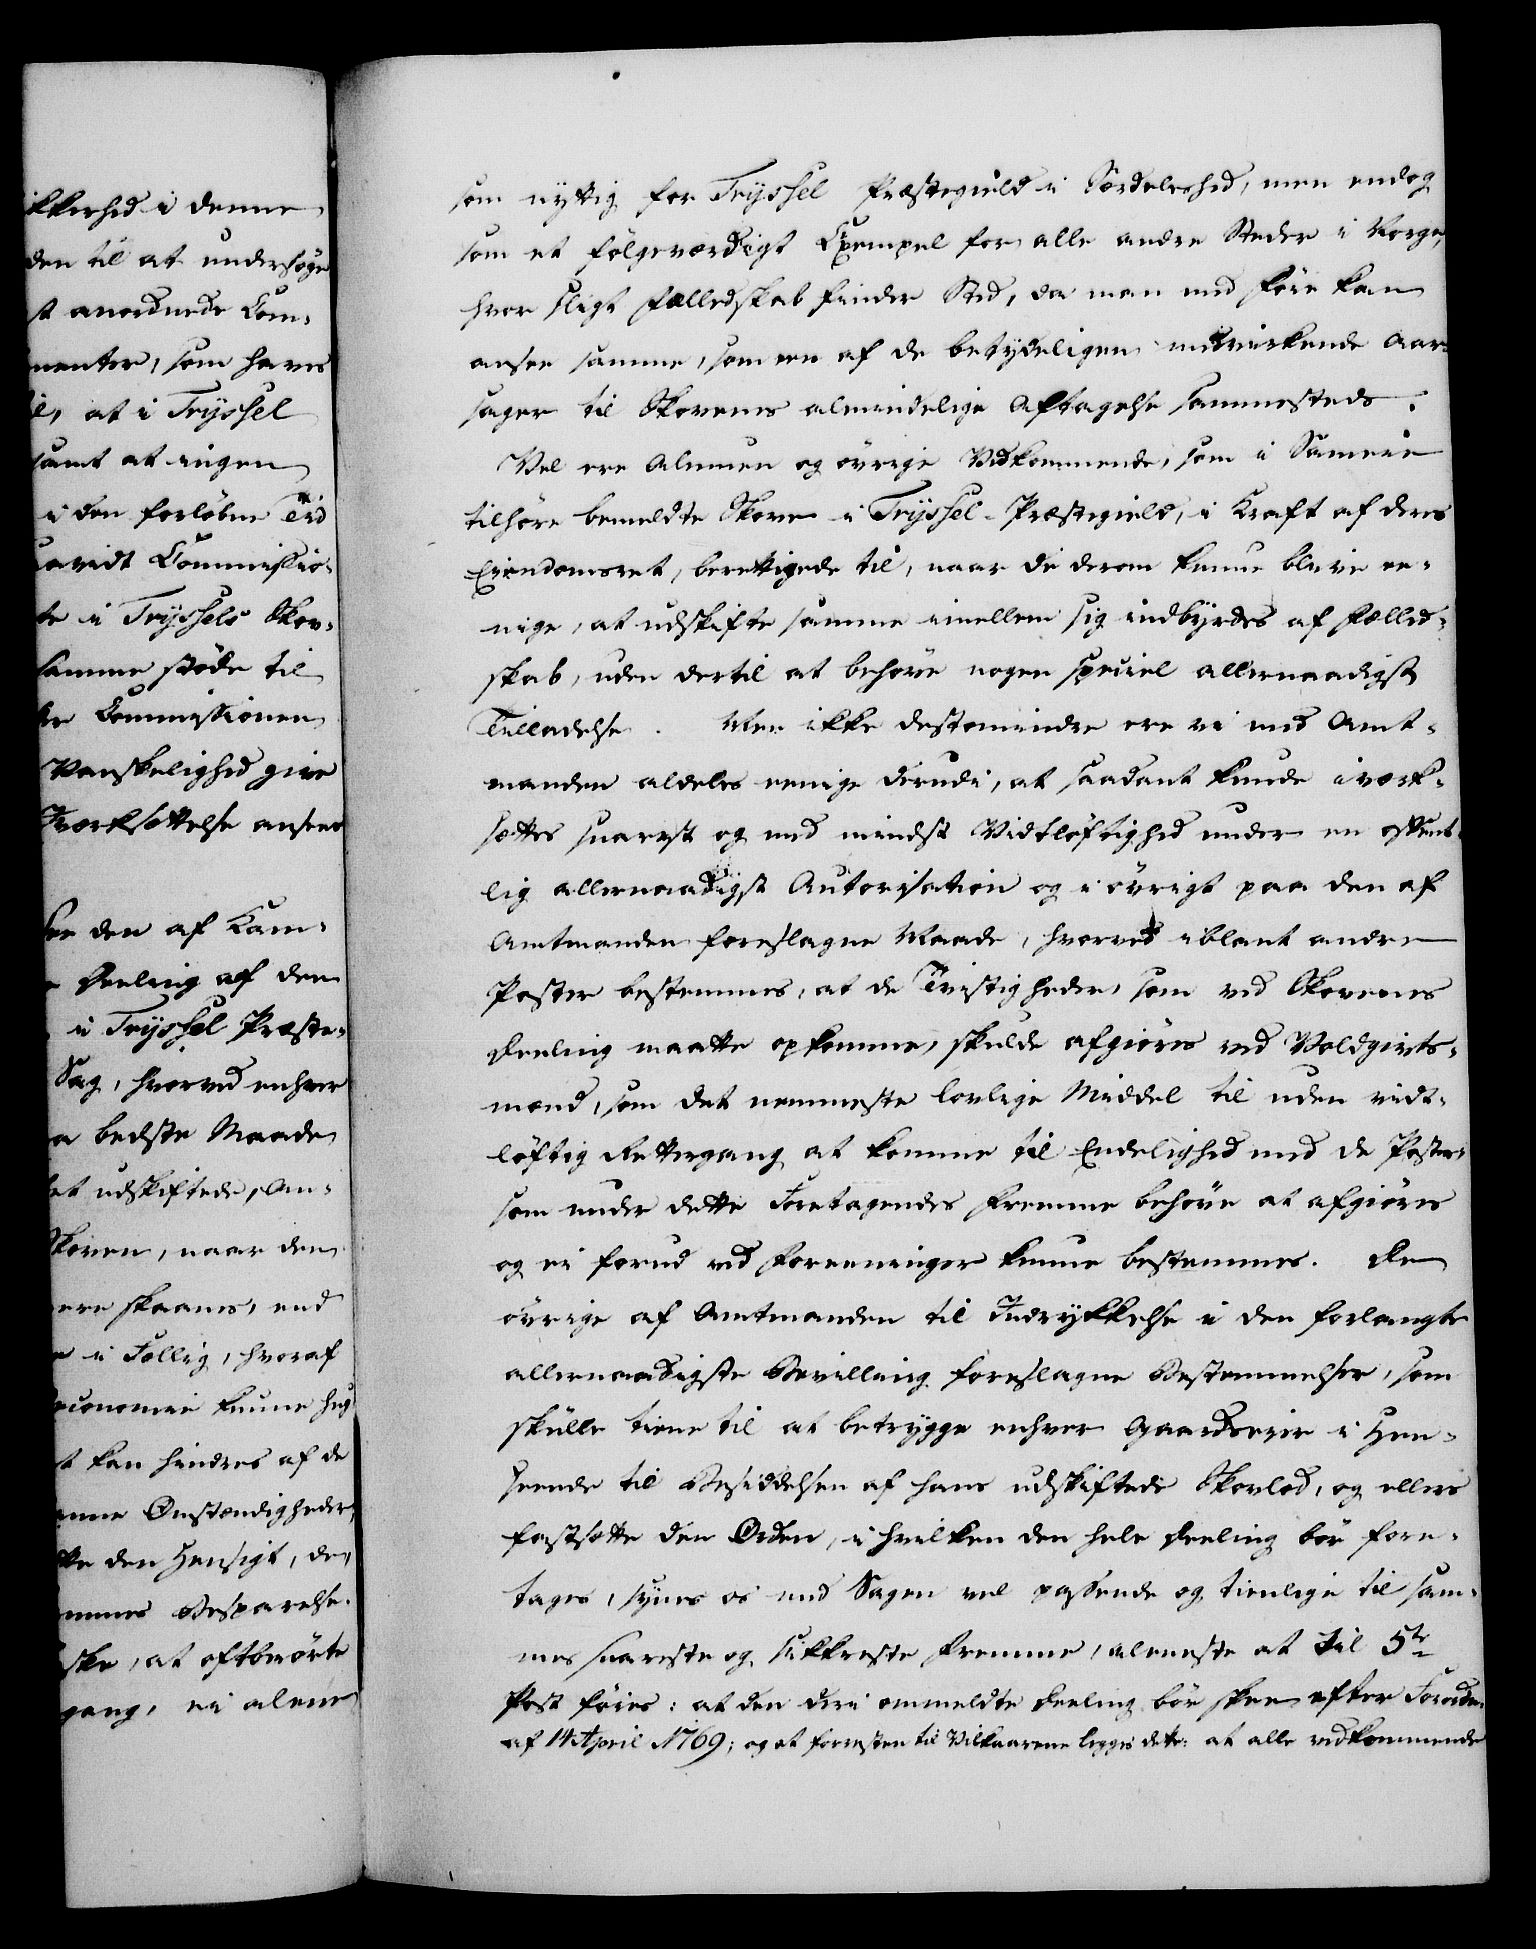 ikkerhed i denne
den til at undersøge
st anordnede Com¬
menter, som haves
at i Tryssel
samt at ingen
i den forløbne Tid
savidt Commissio¬
te i Tryssels Skov¬
samme støde til
Commissionen
Vanskelighed give
Iværksættelse ansees
den af Cam¬
Deeling af den
i Tryssel Præste¬
Sag, hvorved enhver
bedste Maade
et udskiftede, An¬
Skoven, naar den
ere skaanes, end
i Fællig, hvoraf
oeconomie kunne hug
t kan hindres af de
Omstændigheder,
den Hensigt, de
Besparelse.
at oftberørte
gang, ei alene
som nyttig for Tryssel Præstegield i Særdeleshed, men endog
som et følgeværdigt Exempel for alle andre Steder i Norge,
hvor sligt Fælledskab finder Sted, da man med Føie kan
ansee samme, som een af de betydeligen medvirkende Aar¬
sager til Skovenes almindelige Aftagelse sammesteds.
Vel ere Almuen og øvrige Vedkommende, som i Sameie
tilhøre bemeldte Skove i Tryssel-Præstegield, i Kraft af deres
Eiendomsret, berettigede til, naar de derom kunne blive ee¬
nige, at udskifte samme imellem sig indbyrdes af Fælled¬
skab, uden dertil at behøve nogen speciel allernaadigst
Tilladelse. Men ikke destomindre ere vi med Amt¬
manden aldeles eenige derudi, at saadant kunde iværk¬
sættes snarest og med mindst Vidtløftighed under en offent¬
lig allernaadigst Autorisation og i øvrigt paa den af
Amtmanden foreslagne Maade, hvorved iblant andre
Poster bestemmes, at de Tvistigheder, som ved Skovenes
Deeling maatte opkomme, skulde afgiøres ved Voldgivts¬
mænd, som det nemmeste lovlige Middel til uden vidt¬
løftig Rettergang at komme til Endelighed med de Poster,
som under dette Foretagendes Fremme behøve at afgiøres
og ei forud ved Foreeninger kunne bestemmes. De
øvrige af Amtmanden til Indrykkelse i den forlangte
allernaadigste Bevilling foreslagne Bestemmelser, som
skulle tiene til at betrygge enhver Gaardeier i Hen¬
seende til Besiddelsen af hans udskiftede Skovlod, og ellers
fastsætte den Orden, i hvilken den hele Deeling bør fore¬
tages, synes os med Sagen vel passende og tienlige til sam¬
mes snareste og sikkreste Fremme, aleneste at til 5te
Post føies: at den deri ommeldte Deeling bør skee efter Forordn.
af 14 April 1769; og at forresten til Vilkaarene legges dette: at alle vedkommende